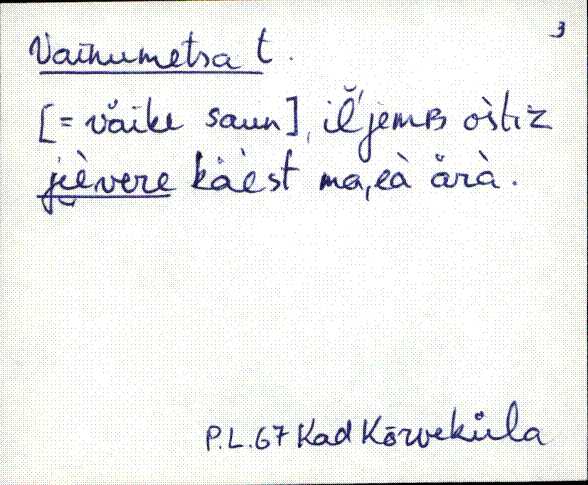 3
Vainumetsa t.
[= väike saun], il'jemʙ ostiz
jèvere käèst ma,eà ärà.
P.L. 67 Kad Kõrveküla